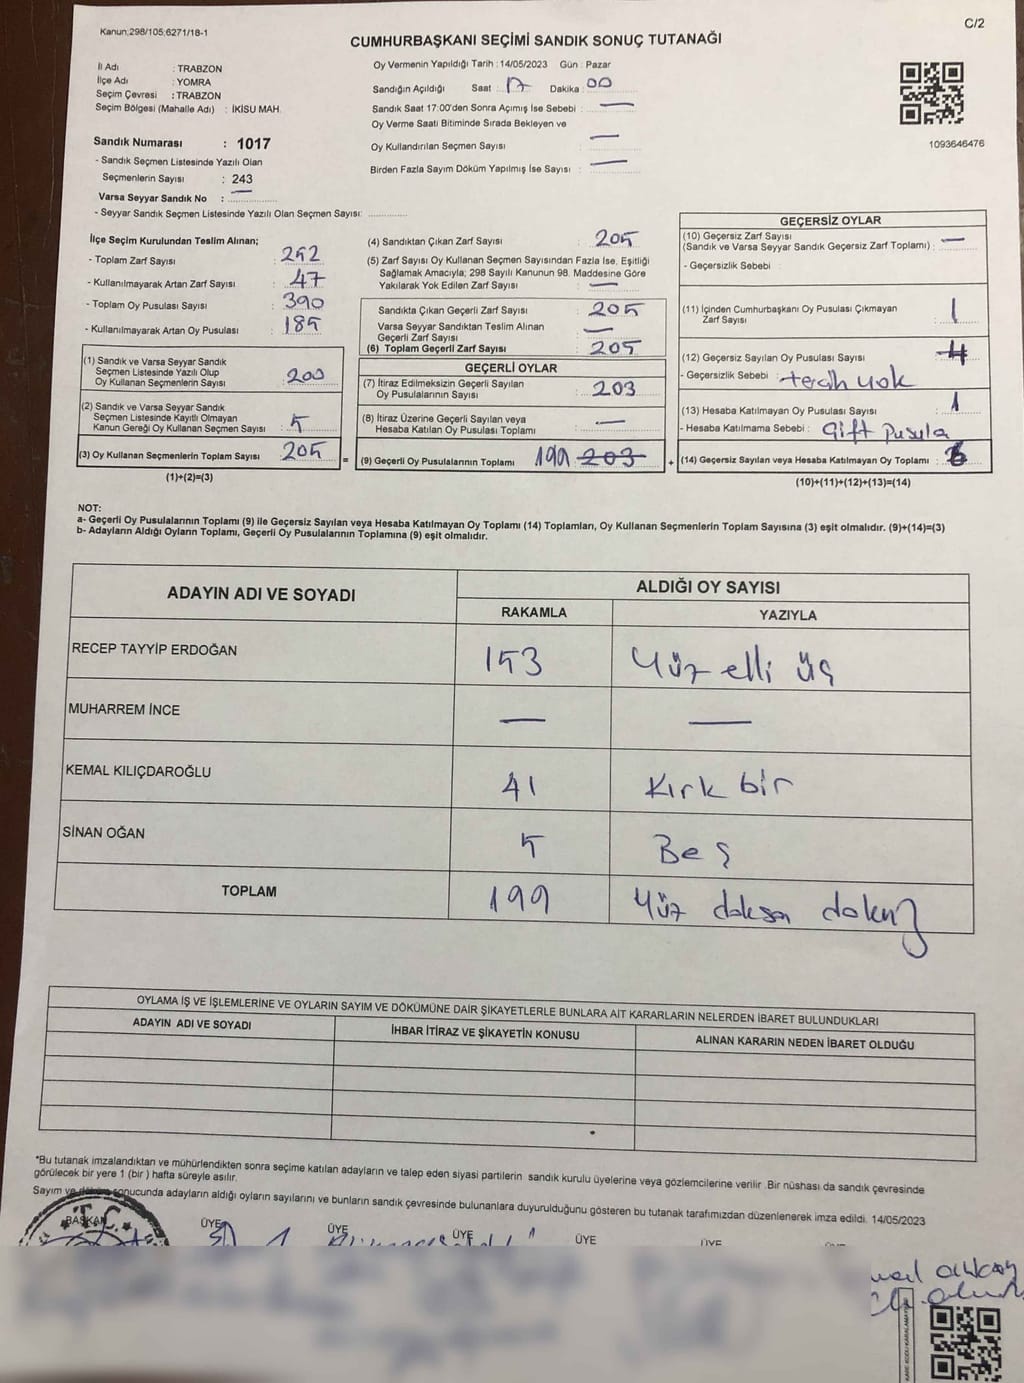 Kanun;298/105;6271/18-1
C/2
CUMHURBAŞKANI SEÇİMİ SANDIK SONUÇ TUTANAĞI
İl Adı : TRABZON
İlçe Adı : YOMRA
Seçim Çevresi : TRABZON
Seçim Bölgesi (Mahalle Adı) : İKİSU MAH.
Oy Vermenin Yapıldığı Tarih : 14/05/2023 Gün : Pazar
Sandığın Açıldığı Saat : 17 Dakika : 00
Sandık Saat 17:00'den Sonra Açımış İse Sebebi : —
Oy Verme Saati Bitiminde Sırada Bekleyen ve
Oy Kullandırılan Seçmen Sayısı : —
Birden Fazla Sayım Döküm Yapılmış İse Sayısı : —
1093646476
Sandık Numarası : 1017
- Sandık Seçmen Listesinde Yazılı Olan
Seçmenlerin Sayısı : 243
Varsa Seyyar Sandık No : —
- Seyyar Sandık Seçmen Listesinde Yazılı Olan Seçmen Sayısı:
İlçe Seçim Kurulundan Teslim Alınan;
- Toplam Zarf Sayısı : 252
- Kullanılmayarak Artan Zarf Sayısı : 47
- Toplam Oy Pusulası Sayısı : 390
- Kullanılmayarak Artan Oy Pusulası : 185
(1) Sandık ve Varsa Seyyar Sandık
Seçmen Listesinde Yazılı Olup
Oy Kullanan Seçmenlerin Sayısı : 200
(2) Sandık ve Varsa Seyyar Sandık
Seçmen Listesinde Kayıtlı Olmayan
Kanun Gereği Oy Kullanan Seçmen Sayısı : 5
(3) Oy Kullanan Seçmenlerin Toplam Sayısı : 205
(1)+(2)=(3)
(4) Sandıktan Çıkan Zarf Sayısı : 205
(5) Zarf Sayısı Oy Kullanan Seçmen Sayısından Fazla İse, Eşitliği
Sağlamak Amacıyla; 298 Sayılı Kanunun 98. Maddesine Göre
Yakılarak Yok Edilen Zarf Sayısı : —
Sandıkta Çıkan Geçerli Zarf Sayısı : 205
Varsa Seyyar Sandıktan Teslim Alınan
Geçerli Zarf Sayısı : —
(6) Toplam Geçerli Zarf Sayısı : 205
GEÇERLİ OYLAR
(7) İtiraz Edilmeksizin Geçerli Sayılan
Oy Pusulalarının Sayısı : 203
(8) İtiraz Üzerine Geçerli Sayılan veya
Hesaba Katılan Oy Pusulası Toplamı : —
= (9) Geçerli Oy Pusulalarının Toplamı 199 203
GEÇERSİZ OYLAR
(10) Geçersiz Zarf Sayısı
(Sandık ve Varsa Seyyar Sandık Geçersiz Zarf Toplamı) : —
- Geçersizlik Sebebi :
(11) İçinden Cumhurbaşkanı Oy Pusulası Çıkmayan
Zarf Sayısı : 1
(12) Geçersiz Sayılan Oy Pusulası Sayısı : 4
- Geçersizlik Sebebi : tercih yok
(13) Hesaba Katılmayan Oy Pusulası Sayısı : 1
- Hesaba Katılmama Sebebi : Çift Pusula
+ (14) Geçersiz Sayılan veya Hesaba Katılmayan Oy Toplamı : 6
(10)+(11)+(12)+(13)=(14)
NOT:
a- Geçerli Oy Pusulalarının Toplamı (9) ile Geçersiz Sayılan veya Hesaba Katılmayan Oy Toplamı (14) Toplamları, Oy Kullanan Seçmenlerin Toplam Sayısına (3) eşit olmalıdır. (9)+(14)=(3)
b- Adayların Aldığı Oyların Toplamı, Geçerli Oy Pusulalarının Toplamına (9) eşit olmalıdır.
ADAYIN ADI VE SOYADI
ALDIĞI OY SAYISI
RAKAMLA YAZIYLA
RECEP TAYYİP ERDOĞAN 153 Yüz elli üç
MUHARREM İNCE — —
KEMAL KILIÇDAROĞLU 41 Kırk bir
SİNAN OĞAN 5 Beş
TOPLAM 199 Yüz doksan dokuz
OYLAMA İŞ VE İŞLEMLERİNE VE OYLARIN SAYIM VE DÖKÜMÜNE DAİR ŞİKAYETLERLE BUNLARA AİT KARARLARIN NELERDEN İBARET BULUNDUKLARI
ADAYIN ADI VE SOYADI İHBAR İTİRAZ VE ŞİKAYETİN KONUSU ALINAN KARARIN NEDEN İBARET OLDUĞU
*Bu tutanak imzalandıktan ve mühürlendikten sonra seçime katılan adayların ve talep eden siyasi partilerin sandık kurulu üyelerine veya gözlemcilerine verilir. Bir nüshası da sandık çevresinde
görülecek bir yere 1 (bir ) hafta süreyle asılır.
Sayım ve döküm sonucunda adayların aldığı oyların sayılarını ve bunların sandık çevresinde bulunanlara duyurulduğunu gösteren bu tutanak tarafımızdan düzenlenerek imza edildi. 14/05/2023
BAŞKAN ÜYE ÜYE ÜYE ÜYE ÜYE
T.C.